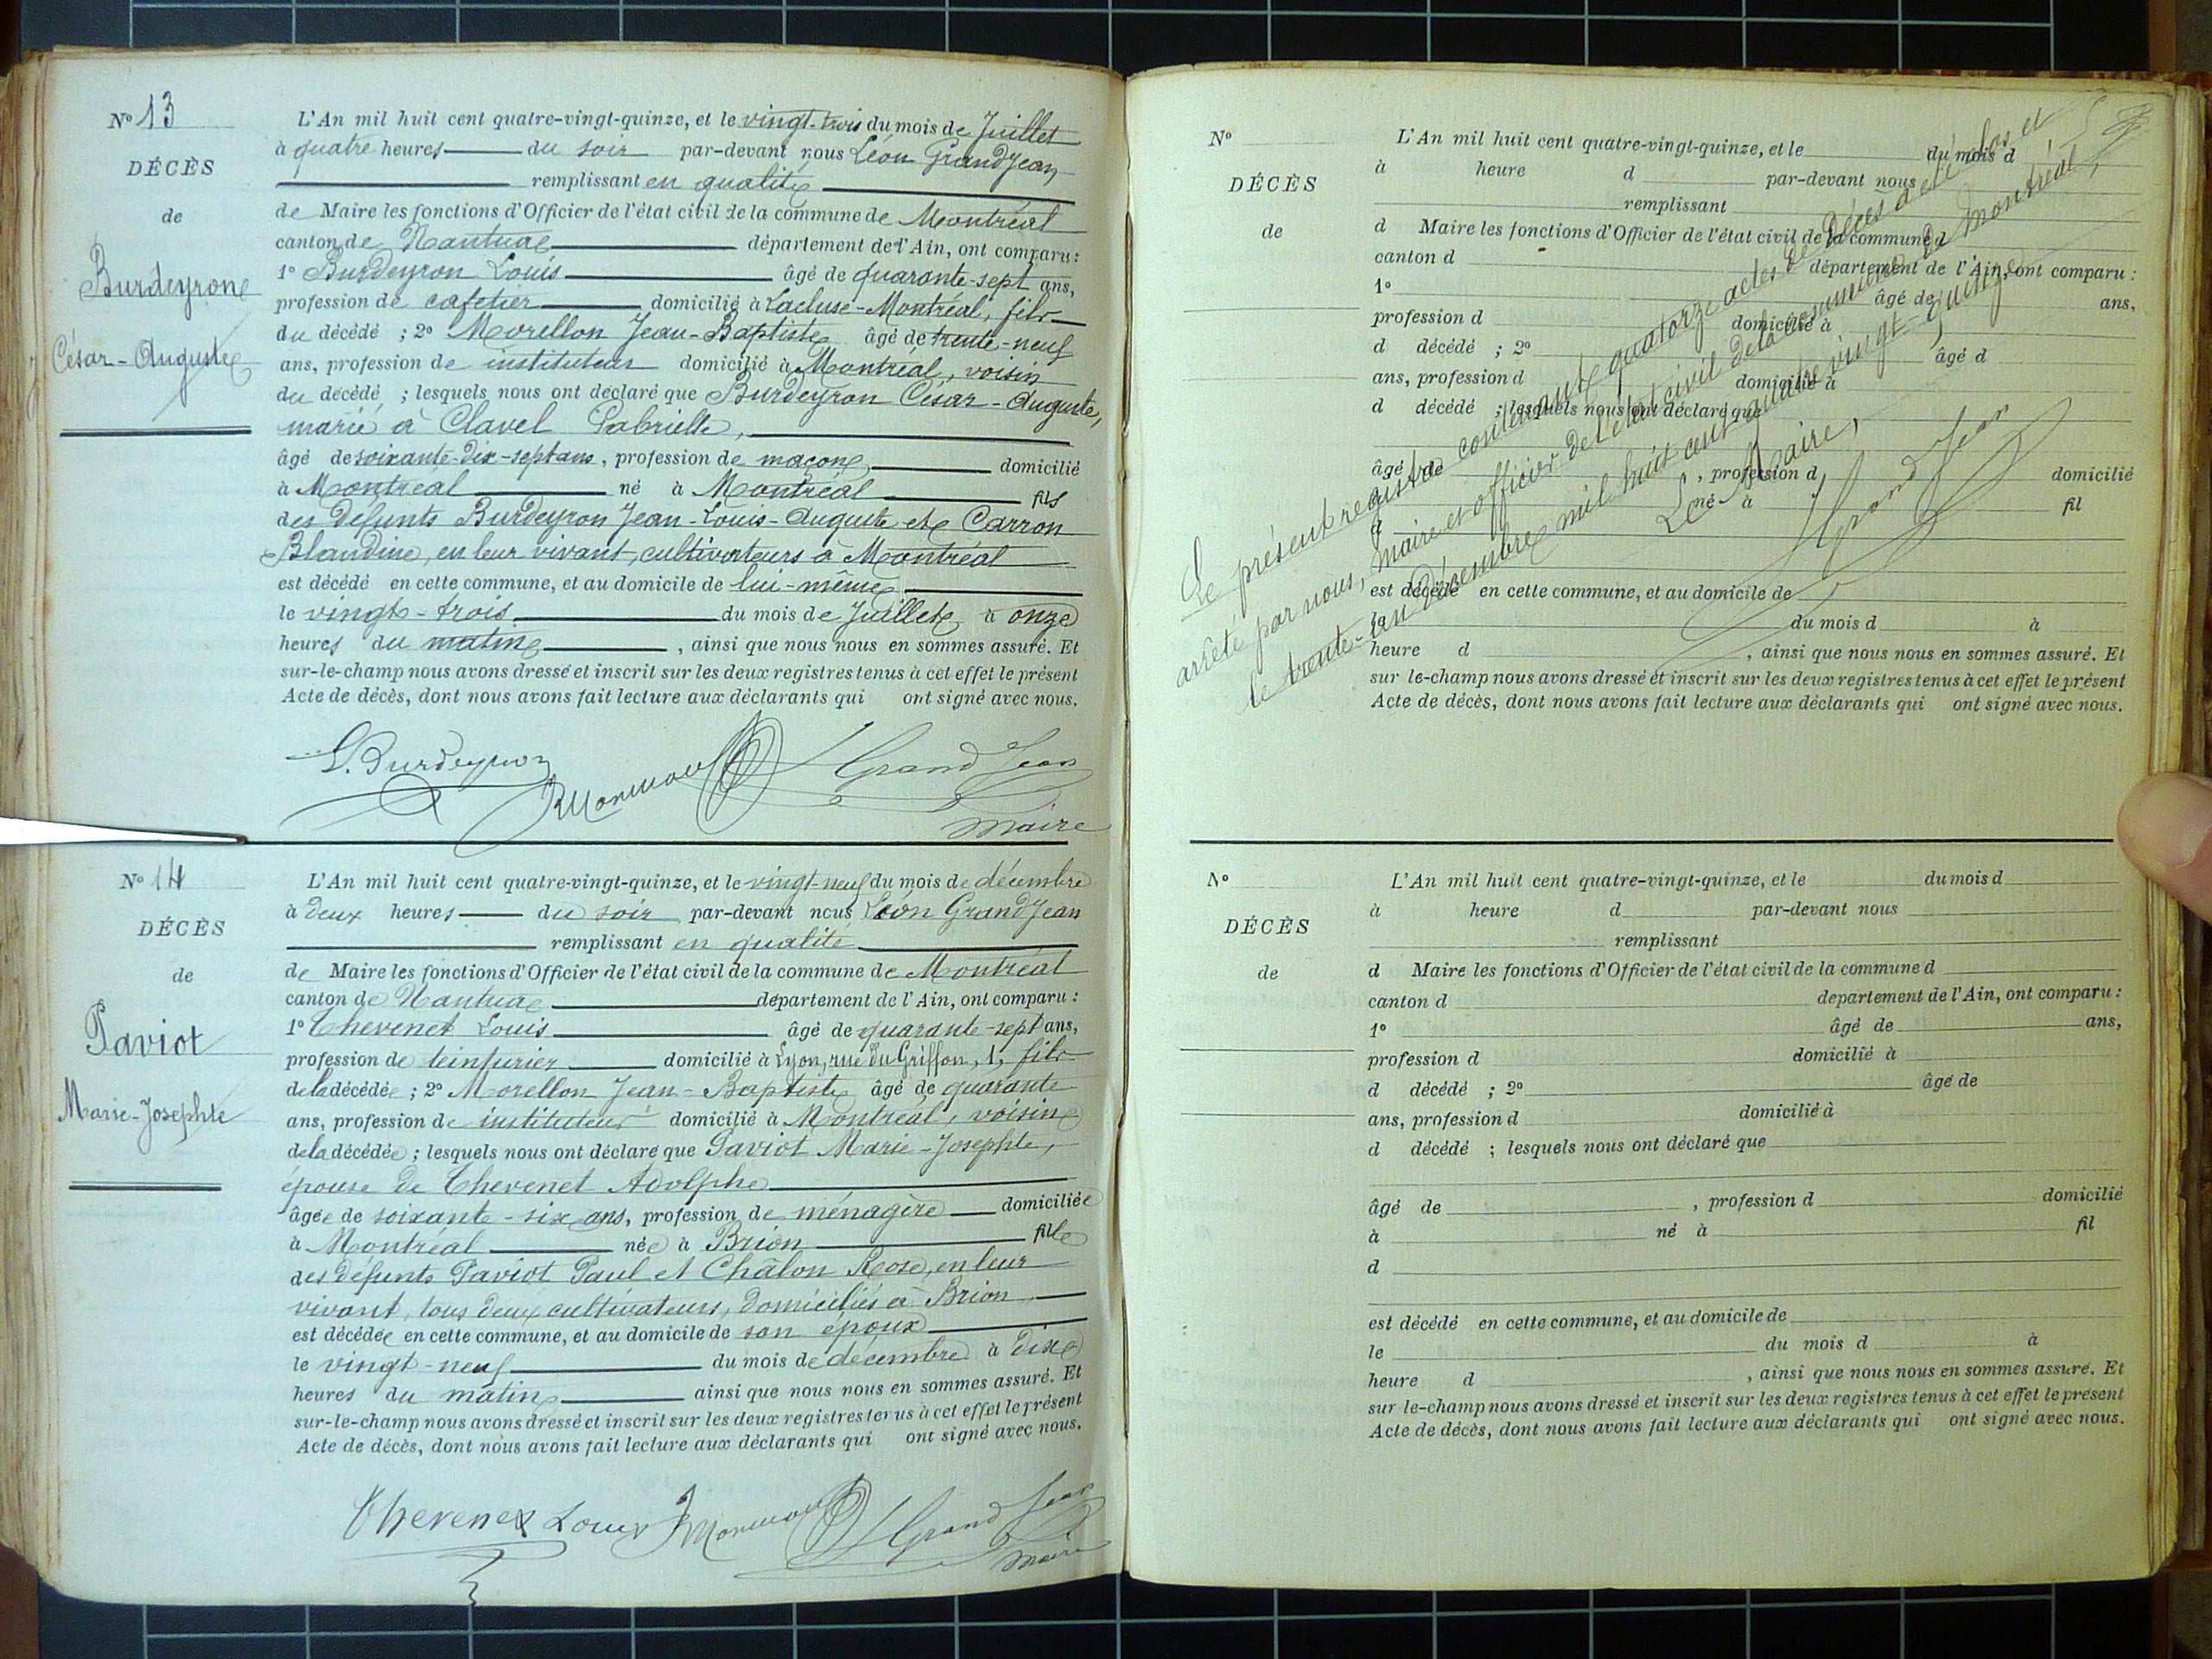 N° 13
DÉCÈS
de
Burdeyron
César-Auguste
L'An mil huit cent quatre-vingt-quinze, et le vingt-trois du mois de Juillet
à quatre heures du soir par-devant nous Léon Grandjean
remplissant en qualité
de Maire les fonctions d'Officier de l'état civil de la commune de Montréal
canton de Nantua département de l'Ain, ont comparu :
1° Burdeyron Louis âgé de quarante-sept ans,
profession de cafetier domicilié à Lacluse-Montréal, fils
du décédé ; 2° Morellon Jean-Baptiste âgé de trente-neuf
ans, profession de instituteur domicilié à Montréal, voisin
du décédé ; lesquels nous ont déclaré que Burdeyron César-Auguste,
marié à Clavel Gabrielle,
âgé de soixante-dix-sept ans, profession de maçon, domicilié
à Montréal né à Montréal fils
des défunts Burdeyron Jean-Louis-Auguste et Carron
Blandine, en leur vivant, cultivateurs à Montréal
est décédé en cette commune, et au domicile de lui-même
le vingt-trois du mois de Juillet à onze
heures du matin, ainsi que nous nous en sommes assuré. Et
sur-le-champ nous avons dressé et inscrit sur les deux registres tenus à cet effet le présent
Acte de décès, dont nous avons fait lecture aux déclarants qui ont signé avec nous.
L. Burdeyron
Grand Jean
Maire
N° 14
DÉCÈS
de
Paviot
Marie-Josephte
L'An mil huit cent quatre-vingt-quinze, et le vingt-neuf du mois de décembre
à deux heures du soir par-devant nous Léon Grandjean
remplissant en qualité
de Maire les fonctions d'Officier de l'état civil de la commune de Montréal
canton de Nantua département de l'Ain, ont comparu :
1° Thevenet Louis âgé de quarante-sept ans,
profession de teinturier domicilié à Lyon, rue du Griffon, 1, fils
de la décédée ; 2° Morellon Jean-Baptiste âgé de quarante
ans, profession de instituteur domicilié à Montréal, voisin
de la décédée ; lesquels nous ont déclaré que Paviot Marie-Josephte,
épouse de Thevenet Adolphe
âgée de soixante-six ans, profession de ménagère domiciliée
à Montréal née à Brion fille
des défunts Paviot Paul et Châlon Rose, en leur
vivant, tous deux cultivateurs, domiciliés à Brion
est décédée en cette commune, et au domicile de son époux
le vingt-neuf du mois de décembre à dix
heures du matin ainsi que nous nous en sommes assuré. Et
sur-le-champ nous avons dressé et inscrit sur les deux registres tenus à cet effet le présent
Acte de décès, dont nous avons fait lecture aux déclarants qui ont signé avec nous.
Thevenet Louis
Grand Jean
Maire
N°
DÉCÈS
de
L'An mil huit cent quatre-vingt-quinze, et le du mois d
à heure d par-devant nous
remplissant
d Maire les fonctions d'Officier de l'état civil de la commune d
canton d département de l'Ain, ont comparu :
1° âgé de ans,
profession d domicilié à
d décédé ; 2° âgé d
ans, profession d domicilié à
d décédé ; lesquels nous ont déclaré que
âgé de , profession d domicilié
à né à fil
d
est décédé en cette commune, et au domicile de
le du mois d à
heure d , ainsi que nous nous en sommes assuré. Et
sur le-champ nous avons dressé et inscrit sur les deux registres tenus à cet effet le présent
Acte de décès, dont nous avons fait lecture aux déclarants qui ont signé avec nous.
Le présent registre contenant quatorze actes de décès a été clos et
arrêté par nous, maire et officier de l'état civil de la commune de Montréal,
le trente-un décembre mil huit cent quatre vingt-quinze
Le Maire,
Grand Jean
N°
DÉCÈS
de
L'An mil huit cent quatre-vingt-quinze, et le du mois d
à heure d par-devant nous
remplissant
d Maire les fonctions d'Officier de l'état civil de la commune d
canton d département de l'Ain, ont comparu :
1° âgé de ans,
profession d domicilié à
d décédé ; 2° âgé de
ans, profession d domicilié à
d décédé ; lesquels nous ont déclaré que
âgé de , profession d domicilié
à né à fil
d
est décédé en cette commune, et au domicile de
le du mois d à
heure d , ainsi que nous nous en sommes assuré. Et
sur le-champ nous avons dressé et inscrit sur les deux registres tenus à cet effet le présent
Acte de décès, dont nous avons fait lecture aux déclarants qui ont signé avec nous.